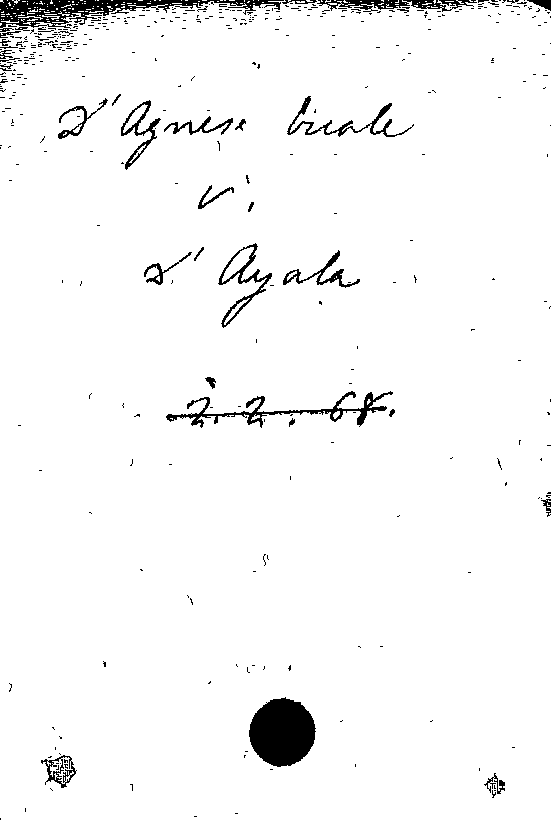 D'Agnese
v.
D'Ayala
2.2.68.